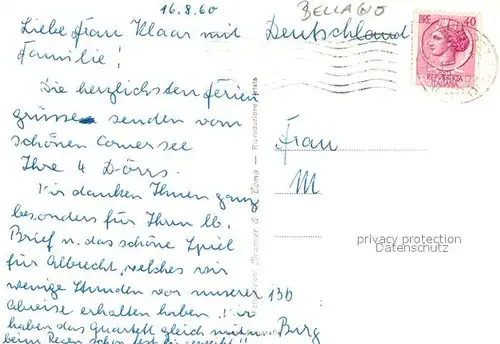 16.8.60
Liebe Frau Klaar mit
Familie!
Die herzlichsten Ferien
grüsse senden vom
schönen Comersee
Ihre 4 Dörrs.
Wir danken Ihnen ganz
besonders für Ihren lb.
Brief u. das schöne Spiel
für Albrecht, welches wir
wenige Stunden vor unserer
Abreise erhalten haben. Wir
haben das Quartett gleich
beim Regen schon fest
BELLAGIO
Deutschland
LIRE 40
REPUBBLICA
ITALIANA
Frau
M
privacy protection
Datenschutz
13b
Burg
Riproduzione vietata
Como